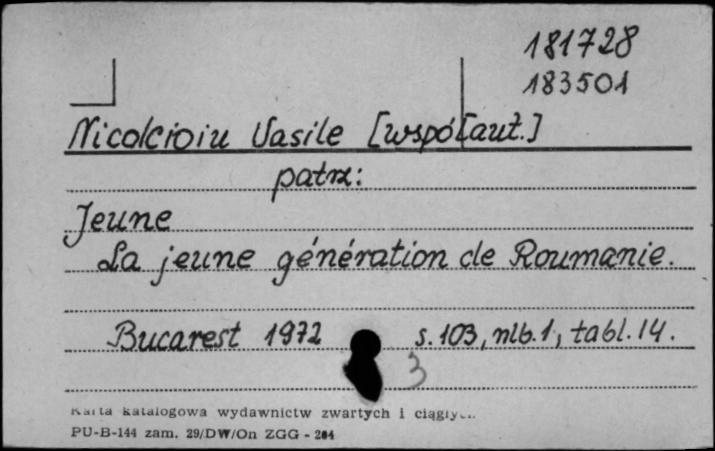 181728
183501
Nicolcioiu Vasile [współaut.]
patrz:
Jeune
La jeune génération de Roumanie.
Bucarest 1972 s. 103, nlb. 1, tabl. 14.
3
Karta katalogowa wydawnictw zwartych i ciągłych
PU-B-144 zam. 29/DW/On ZGG - 204